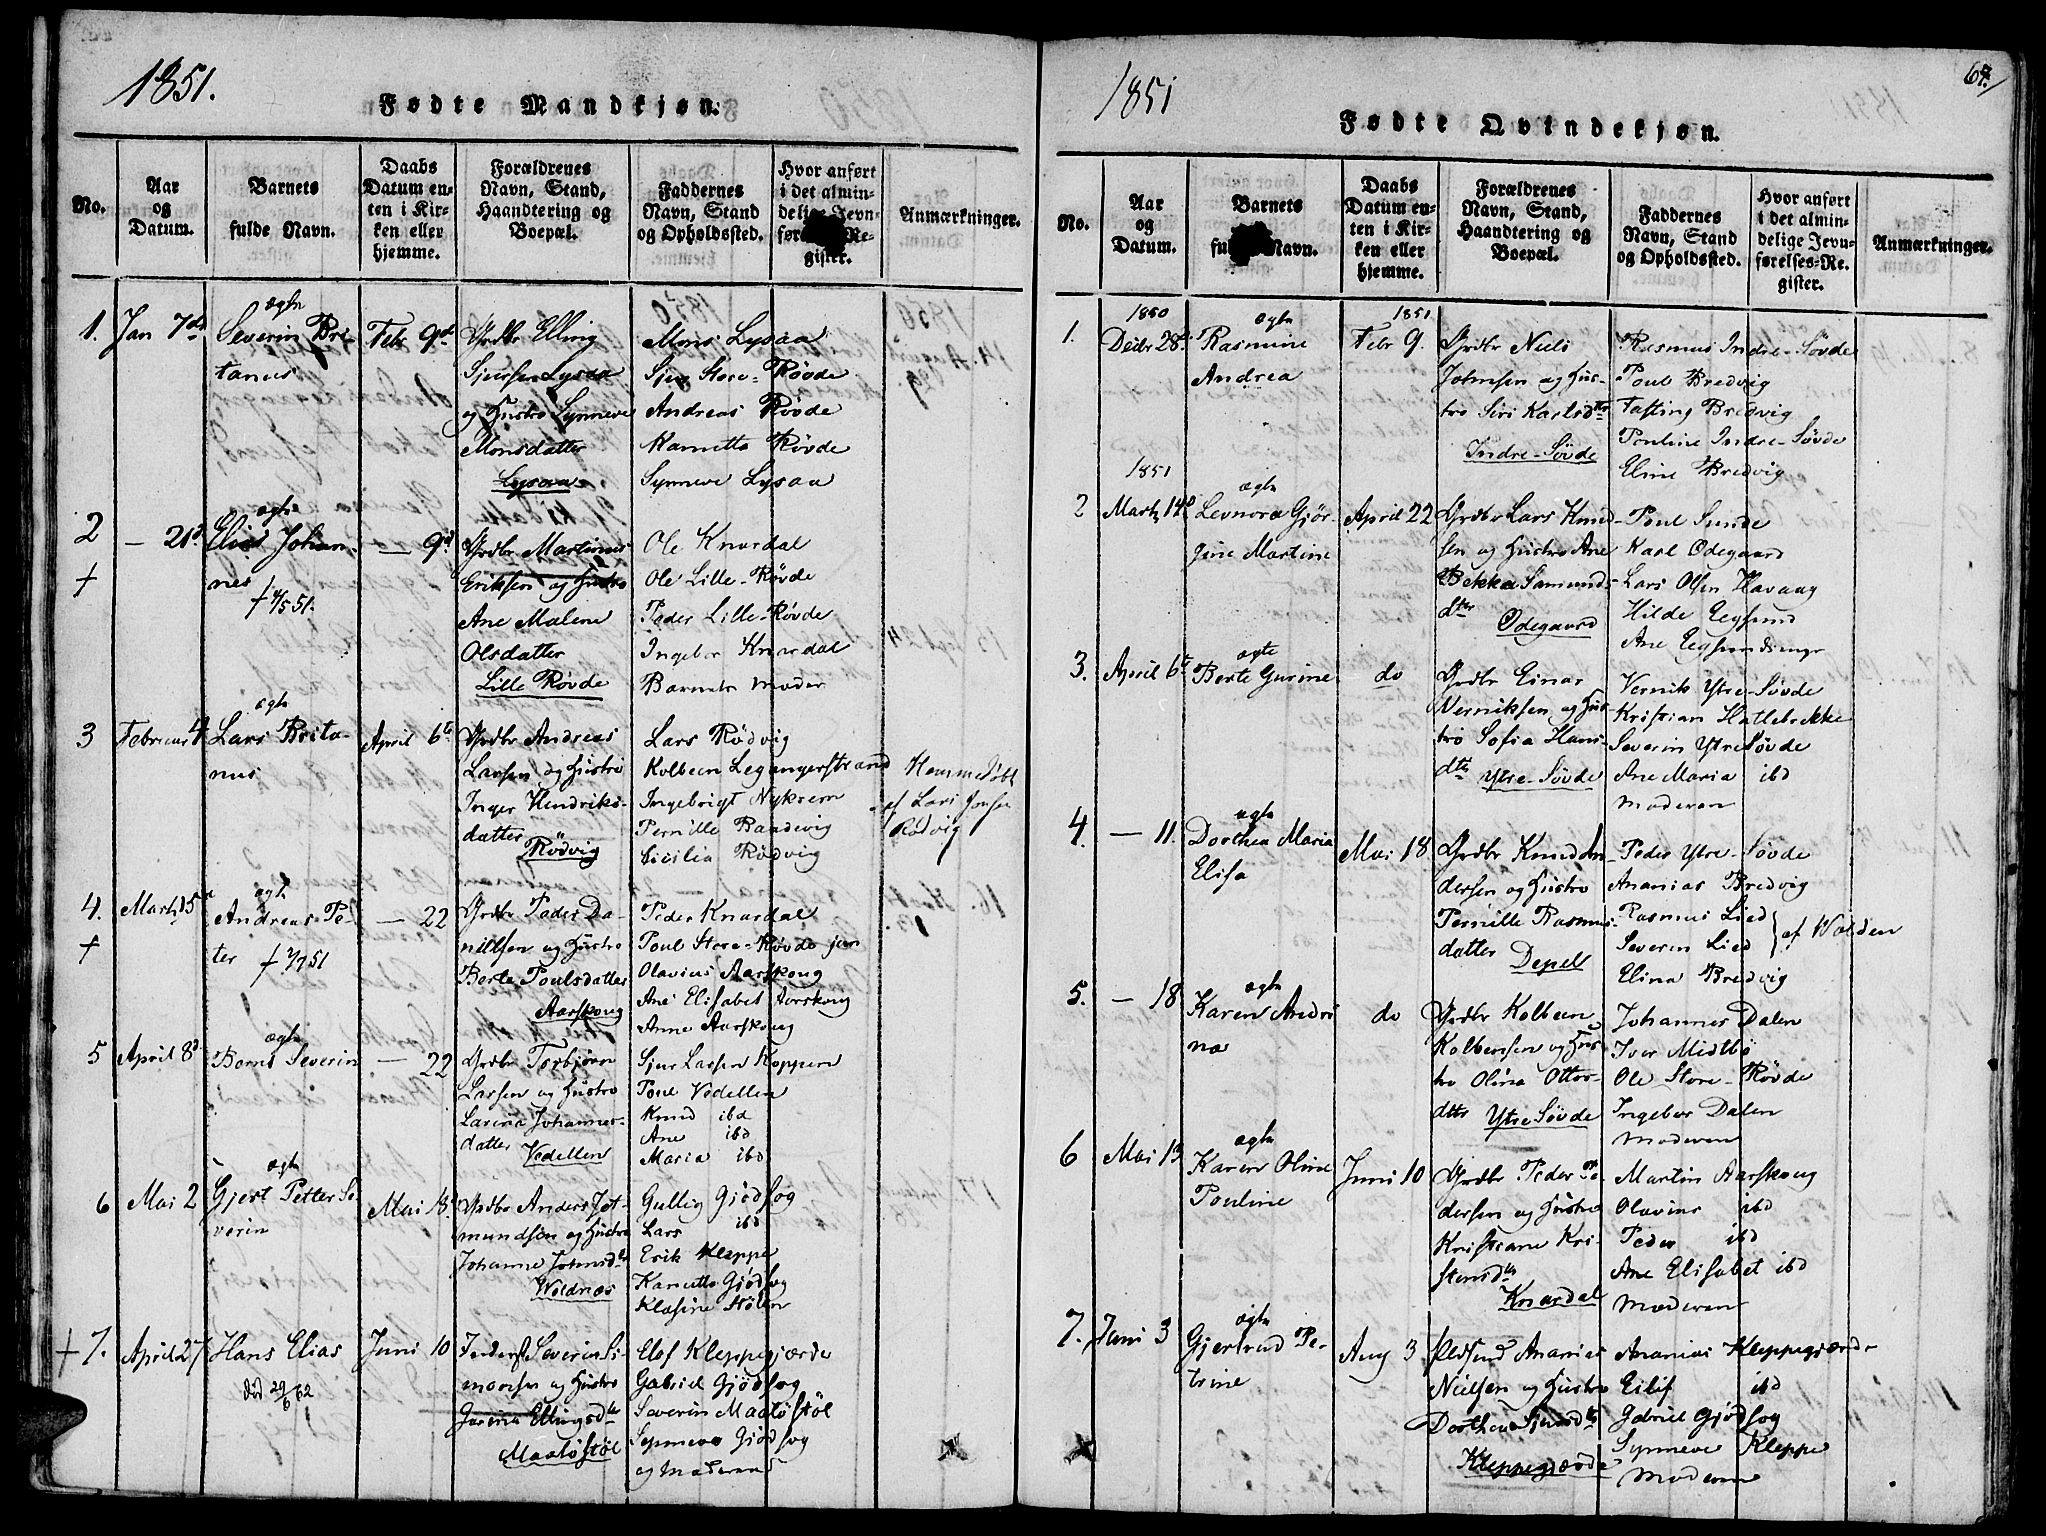 1851.
Fødte Mandkjøn.
No.
Aar og Datum.
Barnets fulde Navn.
Daabs Datum enten i Kirken eller hjemme.
Forældrenes Navn, Stand, Haandtering og Boepæl.
Faddernes Navn, Stand og Opholdssted.
Hvor anført i det almindelige Jevnførelses-Register.
Anmærkninger.
1. Jan 7de
ægte
Severin Bri-
tanus
Febr 9de
Grdbr Elling
Sjursen Lysaa
og Hustro Synneve
Monsdatter
Lysaa
Mons Lysaa
Sjur Store-Røvde
Andreas Røvde
Kanutte Røvde
Synneve Lysaa
2 — 21d
†
ægte
Elias Johan-
nes
† 4/5 51.
— 9d
Grdbr Martinus
Eriksen og Hustro
Ane Malene
Olsdatter
Lille Røvde
Ole Knardal
Ole Lille-Røvde
Peder Lille-Røvde
Ingebor Knardal
Barnets Moder
3 Februar 4
ægte
Lars Brita-
nus
April 6te
Grdbr Andreas
Larsen og Hustro
Inger Hendriks-
datter
Rødvig
Lars Rødvig
Kolbeen Legangerstrand
Ingebrigt Nykrem
Pernille Baadsvig
Sicilia Rødvig
Hemmedøbt
af Lars Jonsen
Rødvig
4. Marts 15
†
ægte
Andreas Pe-
ter † 7/7 51
— 22
Grdbr Peder Da-
nillsen og Hustro
Berte Poulsdatter
Aarskoug
Peder Knardal
Poul Store-Røvde jun
Olavius Aarskoug
Ane Elisabet Aarskoug
Anne Aarskoug
5 April 8d
ægte
Bernt Severin
— 22
Grdbr Torbjørn
Larsen og Hustro
Larina Johannes-
datter
Vedellen
Sjur Larsen Koppen
Poul Vedellen
Knud ibd
Ane ibd
Maria ibd
6 Mai 2
ægte
Gjert Petter Se-
verin
Mai 18
Grdbr Anders Jet-
mundsen og Hustro
Johanne Johnsdtr
Woldnæs
Gullig Gjødsog
Lars ibd
Erik Kleppe
Kanutte Gjødsog
Klasine Hølen
† 7. April 27
Hans Elias
død 29/6 62
Juni 10
Inderst Severin Si-
monsen og Hustro
Jverina Ellingsdtr
Maaløstøl
Elof Kleppegjærde
Gabriel Gjødsog
Severin Maaløstøl
Synneva Gjødsog
og Moderen
1851
67.
Fødte Qvindekjøn.
No.
Aar og Datum.
Barnets fulde Navn.
Daabs Datum enten i Kirken eller hjemme.
Forældrenes Navn, Stand, Haandtering og Boepæl.
Faddernes Navn, Stand og Opholdssted.
Hvor anført i det almindelige Jevnførelses-Register.
Anmærkninger.
1850
1. Decbr 28de
ægte
Rasmine
Andrea
1851
Febr 9.
Grdbr Niels
Johnsen og Hus-
tro Siri Karlsdtr
Indre-Søvde
Rasmus Indre-Søvde
Poul Bredvig
Fasting Bredvig
Pouline Indre-Søvde
Eline Bredvig
1851
2 Marts 14
ægte
Levnora Gjør-
gine Martine
April 22
Grdbr Lars Knud-
sen og Hustro Ane
Bekka Samunds-
dtr
Ødegaard
Poul Sunde
Karl Ødegaard
Lars Olsen Havaag
Hilde Eegsund
Ane Eegsund
3. April 6te
ægte
Berte Gurine
do
Grdbr Einar
Verniksen og Hus-
tro Sofia Hans-
dtr Ytre-Søvde
Vernik Ytre-Søvde
Kristian Hatlebrekke
Severin Ytre Søvde
Ane Maria ibd
Moderen
4. — 11.
ægte
Dorthea Maria
Elisa
Mai 18
Grdbr Knud An-
dersen og Hustro
Pernille Rasmus-
datter
Depel
Peder Ytre-Søvde
Ananias Bredvig
Rasmus Lied
Severin Lied } af Wolden
Elina Bredvig
5. — 18
ægte
Karen Andri-
næ
do
Grdbr Kolbeen
Kolbensen og Hus-
tro Olina Ottos-
dtr Ytre Søvde
Johannes Dalen
Iver Midtbø
Ole Store-Røvde
Ingebor Dalen
Moderen
6 Mai 13
ægte
Karen Oline
Pouline
Juni 10
Grdbr Peder Pe-
dersen og Hustro
Kristiane Kri-
stensdtr
Knardal
Martin Aarskoug
Olavius ibd
Peder ibd
Ane Elisabet ibd
Moderen
7. Juni 3
ægte
Gjertrud Pe-
trine
Aug 3
Pladsmd Ananias
Nielsen og Hustro
Dorthea Sjursdtr
Kleppegjærde
Ananias Kleppegjærde
Eilif ibd
Gabriel Gjødsog
Synneve Kleppe
Moderen